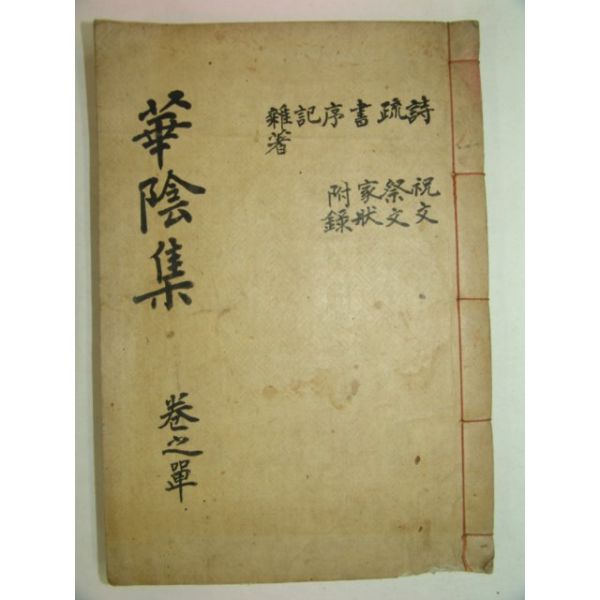 詩 疏 書 序 記 雜著
祝文 祭文 家狀 附錄
華陰集
卷之單